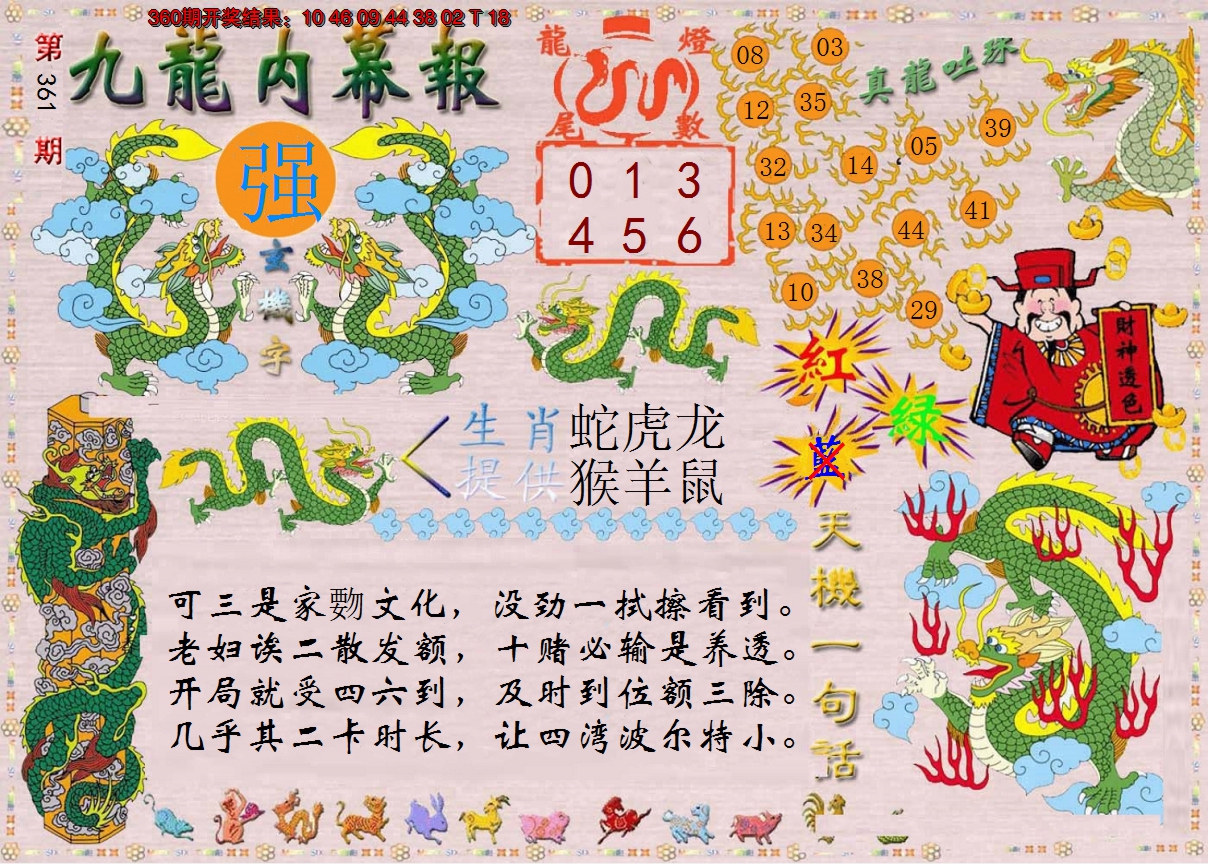 360期开奖结果：10 46 09 44 38 02 T 18
第361期
九龍内幕報
强
玄機字
龍燈
尾數
0 1 3
4 5 6
真龍吐珠
08 03
12 35
05 39
32 14
13 34 44 41
10 38 29
財神透色
紅
綠
藍
生肖 蛇虎龙
提供 猴羊鼠
天機一句話
可三是家覅文化，没劲一拭擦看到。
老妇诶二散发额，十赌必输是养透。
开局就受四六到，及时到位额三除。
几乎其二卡时长，让四湾波尔特小。